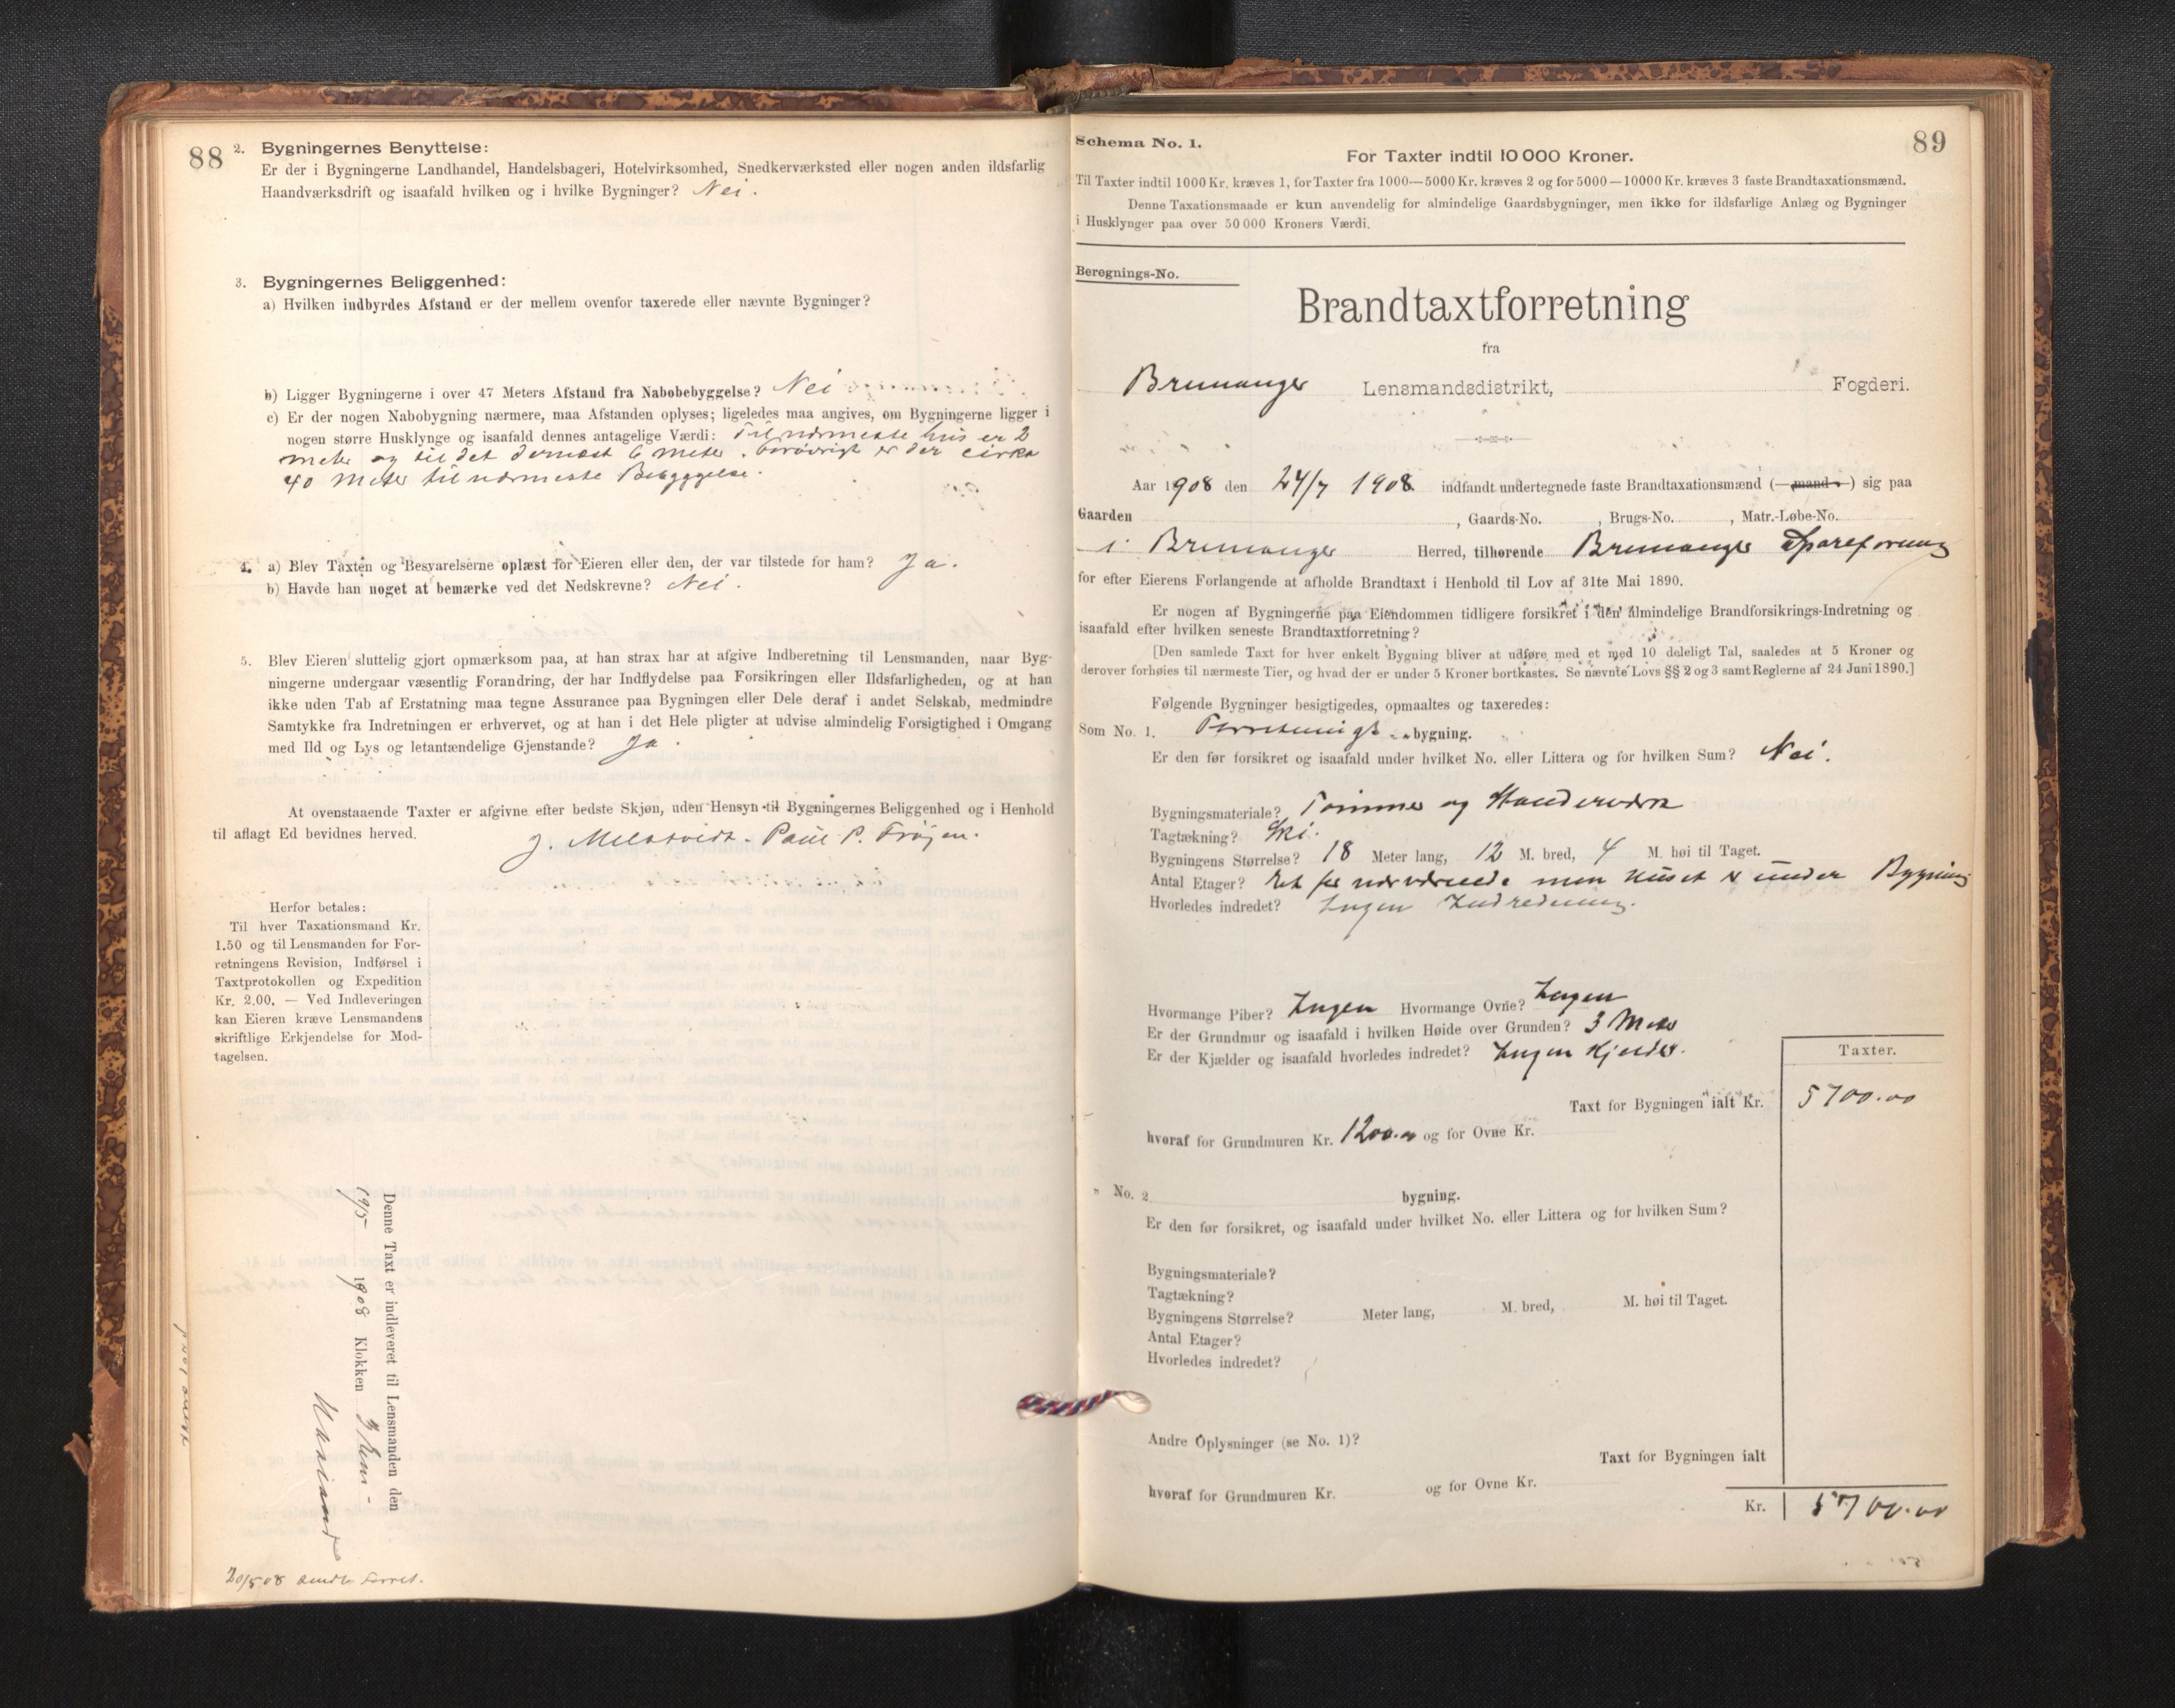 88
2. Bygningernes Benyttelse:
Er der i Bygningerne Landhandel, Handelsbageri, Hotelvirksomhed, Snedkerværksted eller nogen anden ildsfarlig
Haandværksdrift og isaafald hvilken og i hvilke Bygninger? Nei.
3. Bygningernes Beliggenhed:
a) Hvilken indbyrdes Afstand er der mellem ovenfor taxerede eller nævnte Bygninger?
b) Ligger Bygningerne i over 47 Meters Afstand fra Nabobebyggelse? Nei
c) Er der nogen Nabobygning nærmere, maa Afstanden oplyses; ligeledes maa angives, om Bygningerne ligger i
nogen større Husklynge og isaafald dennes antagelige Værdi: Til nærmeste hus er 2
meter og til det dernæst 6 meter. Forøvrigt er der cirka
40 Meter til nærmeste Bebyggelse.
4. a) Blev Taxten og Besvarelserne oplæst for Eieren eller den, der var tilstede for ham? Ja.
b) Havde han noget at bemærke ved det Nedskrevne? Nei.
5. Blev Eieren sluttelig gjort opmærksom paa, at han strax har at afgive Indberetning til Lensmanden, naar Byg-
ningerne undergaar væsentlig Forandring, der har Indflydelse paa Forsikringen eller Ildsfarligheden, og at han
ikke uden Tab af Erstatning maa tegne Assurance paa Bygningen eller Dele deraf i andet Selskab, medmindre
Samtykke fra Indretningen er erhvervet, og at han i det Hele pligter at udvise almindelig Forsigtighed i Omgang
med Ild og Lys og letantændelige Gjenstande? Ja.
At ovenstaaende Taxter er afgivne efter bedste Skjøn, uden Hensyn til Bygningernes Beliggenhed og i Henhold
til aflagt Ed bevidnes herved. J. Paul P. Frøjen.
Herfor betales:
Til hver Taxationsmand Kr.
1.50 og til Lensmanden for For-
retningens Revision, Indførsel i
Taxtprotokollen og Expedition
Kr. 2.00. — Ved Indleveringen
kan Eieren kræve Lensmandens
skriftlige Erkjendelse for Mod-
tagelsen.
Denne Taxt er indleveret til Lensmanden den
19/5 1908 Klokken 3
20/5 08 sendt Forret.
89
Schema No. 1.
For Taxter indtil 10 000 Kroner.
Til Taxter indtil 1000 Kr. kræves 1, for Taxter fra 1000—5000 Kr. kræves 2 og for 5000—10000 Kr. kræves 3 faste Brandtaxationsmænd.
Denne Taxationsmaade er kun anvendelig for almindelige Gaardsbygninger, men ikke for ildsfarlige Anlæg og Bygninger
i Husklynger paa over 50 000 Kroners Værdi.
Beregnings-No.
Brandtaxtforretning
fra
Bremanger Lensmandsdistrikt, Fogderi.
Aar 1908 den 24/7 1908 indfandt undertegnede faste Brandtaxationsmænd (—mand—) sig paa
Gaarden , Gaards-No. , Brugs-No. , Matr.-Løbe-No.
i Bremanger Herred, tilhørende Bremanger Spareforening
for efter Eierens Forlangende at afholde Brandtaxt i Henhold til Lov af 31te Mai 1890.
Er nogen af Bygningerne paa Eiendommen tidligere forsikret i den almindelige Brandforsikrings-Indretning og
isaafald efter hvilken seneste Brandtaxtforretning?
[Den samlede Taxt for hver enkelt Bygning bliver at udføre med et med 10 deleligt Tal, saaledes at 5 Kroner og
derover forhøies til nærmeste Tier, og hvad der er under 5 Kroner bortkastes. Se nævnte Lovs §§ 2 og 3 samt Reglerne af 24 Juni 1890.]
Følgende Bygninger besigtigedes, opmaaltes og taxeredes:
Som No. 1. Forretnings bygning.
Er den før forsikret og isaafald under hvilket No. eller Littera og for hvilken Sum? Nei.
Bygningsmateriale? Tømmer og
Tagtækning? Ski.
Bygningens Størrelse? 18 Meter lang, 12 M. bred, 4 M. høi til Taget.
Antal Etager? Et for nærværende men Huset er under Bygning
Hvorledes indredet? Ingen Indredning.
Hvormange Piber? Ingen Hvormange Ovne? Ingen
Er der Grundmur og isaafald i hvilken Høide over Grunden? 3 Meter
Er der Kjælder og isaafald hvorledes indredet? Ingen Kjelder.
Taxter.
Taxt for Bygningen ialt Kr. 5700.00
hvoraf for Grundmuren Kr. 1200.00 og for Ovne Kr.
" No. 2 bygning.
Er den før forsikret, og isaafald under hvilket No. eller Littera og for hvilken Sum?
Bygningsmateriale?
Tagtækning?
Bygningens Størrelse? Meter lang, M. bred, M. høi til Taget.
Antal Etager?
Hvorledes indredet?
Andre Oplysninger (se No. 1)?
Taxt for Bygningen ialt
hvoraf for Grundmuren Kr. og for Ovne Kr.
Kr. 5700.00